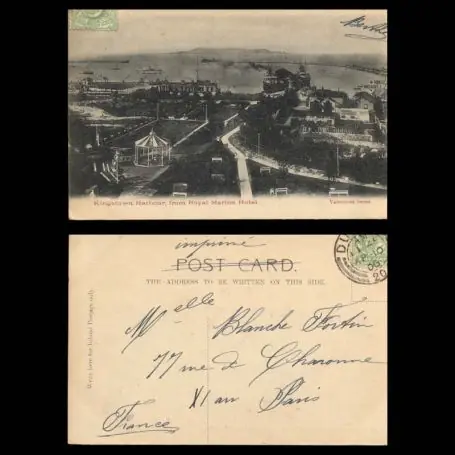 Berthe
Kingstown Harbour, from Royal Marine Hotel
Valentines Series
imprimé
POST CARD.
THE ADDRESS TO BE WRITTEN ON THIS SIDE.
Mlle Blanche Fortin
77 rue de Charonne
XI arr Paris
France
DU
20